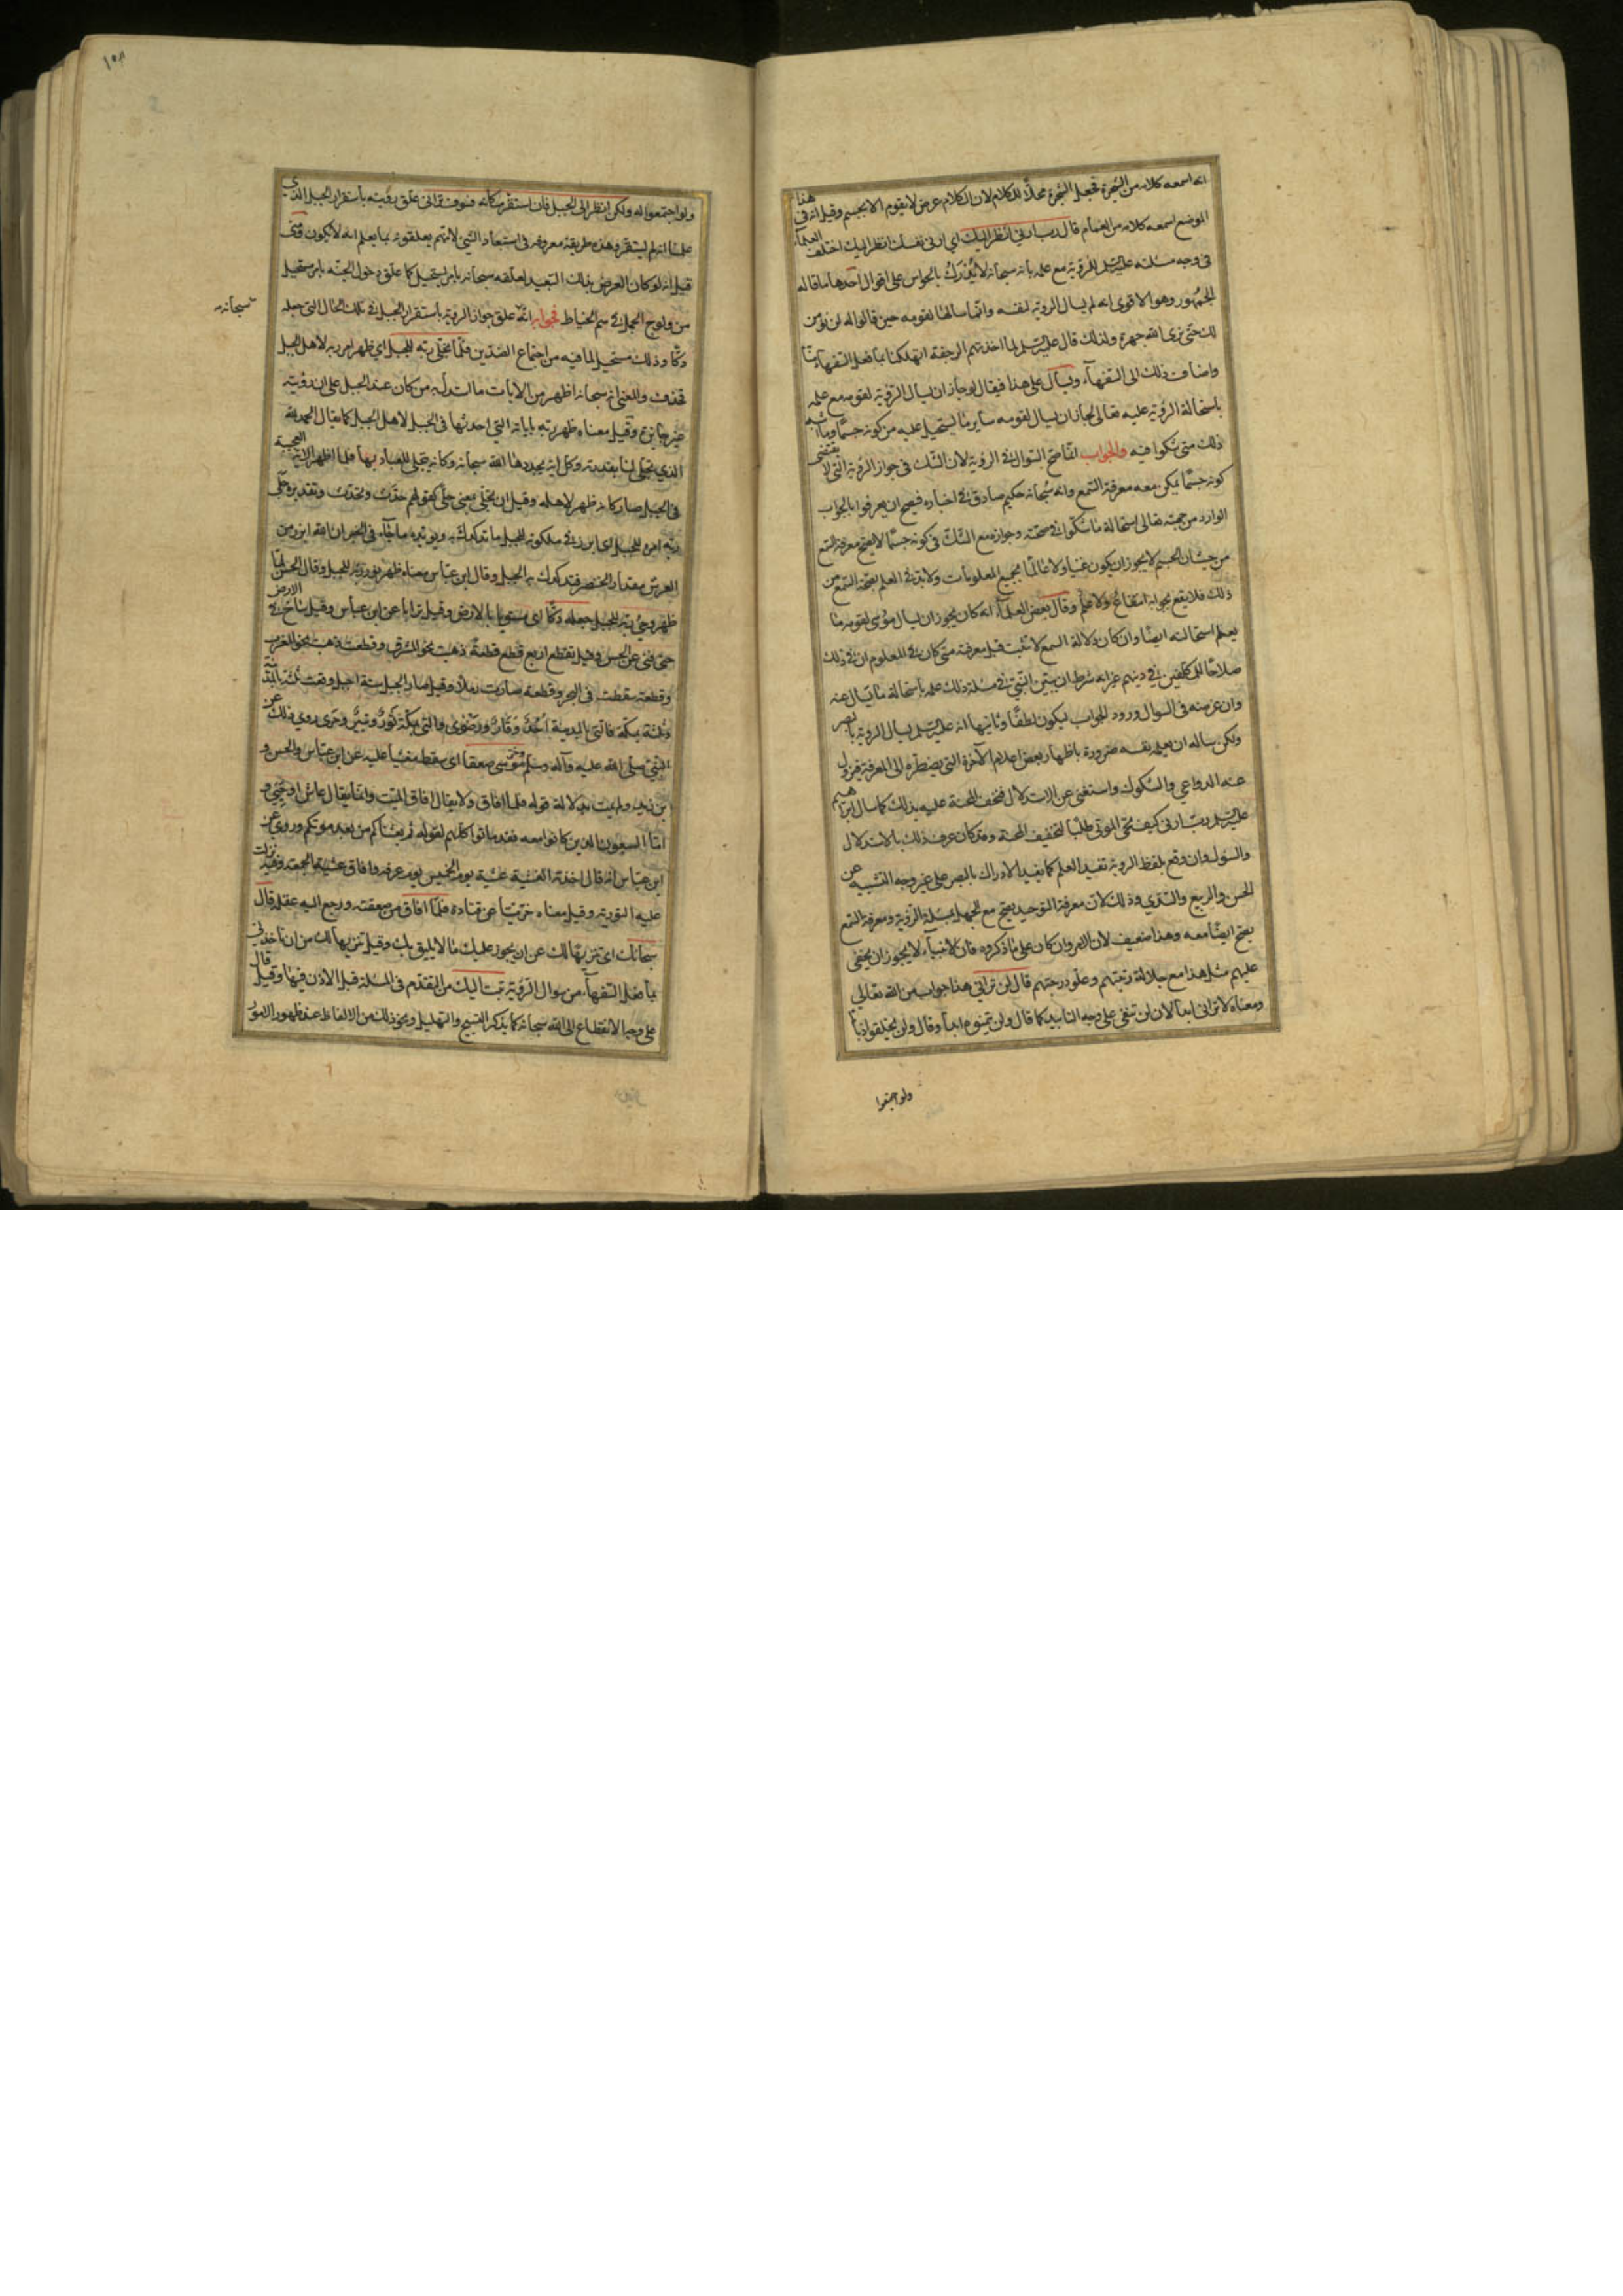 انه اسمعه كلامه من الشجرة فجعل الشجرة محلّا للكلام لان الكلام عرض لا يقوم الا بجسم وقيل انه فى هذا
الموضع اسمعه كلامه من الغمام قال رب ارني انظر اليك اي ارنى نفسك انظر اليك اختلف العلمآء
فى وجه مسئلته عليه السّلم للرؤية مع علمه بانه سبحانه لا يُدْرَكُ بالحواس على اقوال احدها ما قاله
الجمهور وهو الاقوى انه لم يسال الروية لنفسه وانّما سالها لقومه حين قالوا له لن نؤمن
لك حتّى نرى الله جهرة ولذلك قال عليه السّلم لما اخذتهم الرجفة اتهلكنا بما فعل السّفهآء منّا
واضاف ذلك الى السّفهآء ويسأل على هذا فيقال لو جاز ان يسال الرّؤية لقومه مع علمه
باستحالة الرؤية عليه تعالى لجاز ان يسال لقومه ساير ما يستحيل عليه من كونه جسمًا وما اشبه
ذلك متى شكوا فيه والجواب انّما صح السّوال في الروية لان الشّك فى جواز الرّوية التى لا يقتضى
كونه جسمًا يمكن معه معرفة السّمع وانه سُبحانه حكيم صادق في اخباره فيصح ان يعرفوا بالجواب
الوارد من جهته تعالى استحالة ما شكّوا في صحّته وجوازه مع الشّكّ فى كونه جسمًا لا يصح معرفة السّمع
من حيث ان الجسم لا يجوز ان يكون غنيًا ولا عالمًا بجميع المعلومات ولا بدّ في العلم بصحّة السّمع من
ذلك فلا يقع بجوابه انتفاعٌ ولا علمٌ وقال بعض العلمآء انه كان يجوز ان يسال موسى لقومه ما
يعلم استحالته ايضًا وان كان دلالة السمع لا تثبت قبل معرفته متى كان في المعلوم ان في ذلك
صلاحًا للمكلّفين في دينهم غير انه شرط ان يبيّن النّبيّ في مسئلة ذلك علمه باستحالة ما يسال عنه
وان غرضه فى السوال ورود الجواب ليكون لطفًا وثانيها انه عليه السّلم لم يسال الروية بالبصر
ولكن ساله ان يعلمه نفسه ضرورة باظهار بعض اعلام الآخرة التى يضطره الى المعرفة فيزول
عنه الدواعي والشكوك واستغنى عن الاستدلال فخفف المحنة عليه بذلك كما سال ابراهيم
عليه السّلم رب ارنى كيف تحى الموتى طلبًا لتخفيف المحنة وقد كان عرف ذلك بالاستدلال
والسؤل وان وقع بلفظ الروية تفيد العلم كما يفيد الادراك بالبصر على غير وجه التشبيه عن
الحسن والربيع والسّدّي وذلك لان معرفة التوحيد يصح مع الجهل بمسئلة الرّؤية ومعرفة السّمع
يصح ايضًا معه وهذا ضعيف لان الامر وان كان على ما ذكروه فان الانبيآء لا يجوز ان يخفى
عليهم مثل هذا مع جلالة رتبتهم وعلو درجتهم قال لن تراني هذا جواب من الله تعالى
ومعناه لا ترانى ابدًا لان لن تنفى على وجه التابيد كما قال ولن يتمنوه ابدًا وقال ولن يخلقوا ذبابًا
ولو اجتمعوا
١٥٨
ولو اجتمعوا له ولكن انظر الى الجبل فان استقر مكانه فسوف ترانى علّق رؤيته باستقرار الجبل الذي
علمنا انه لم يستقر وهذه طريقة معروفة فى استبعاد الشّي لانهم يعلقونه بما يعلم انه لا يكون ومتى
قيل انه لو كان الغرض بذلك التبعيد لعلّقه سبحانه بامر يستحيل كما علّق دخول الجنّة بامر مستحيل
من ولوج الجمل في سم الخياط فجوابه انّه علق جواز الروية باستقرار الجبل في تلك الحال التى جعله
سبحانه
دكّا وذلك مستحيل لما فيه من اجتماع الضدّين فلمّا تجلّى ربّه للجبل اي ظهر امر ربه لاهل الجبل
فحذف والمعنى انه سبحانه اظهر من الايات ما استدل به من كان عند الجبل على ان رؤيته
غير جايزة وقيل معناه ظهر ربّه باياته التى احدثها فى الجبل لاهل الجبل كما يقال الحمد لله
الذي تجلّى لنا بقدرته وكل اية يجددها الله سبحانه وكانه يتجلى للعباد بها فلما اظهر الاية العجيبة
فى الجبل صار كانه ظهر لاهله وقيل ان تجلّى بمعنى جلّى كقولهم حدّث وتحدّث وتقديره جلّى
ربّه امره للجبل اى ابرز في ملكوته للجبل ما تدكدك به ويؤيّده ما جآء فى الخبر ان الله ابرز من
العرش مقدار الخنصر فتدكدك به الجبل وقال ابن عبّاس معناه ظهر نور ربّه للجبل وقال الحسن لمّا
ظهر وحى ربّه للجبل جعله دكّا اى مستويا بالارض وقيل ترابا عن ابن عباس وقيل ساخ في الارض
حتى فنى عن الحسن وقيل تقطع اربع قطع قطعة ذهبت نحو المشرق وقطعت ذهبت نحو المغرب
وقطعة سقطت فى البحر وقطعة صارت رملًا وقيل صار الجبل ستة اجبل وقعت ثلثة بالمدينة
وثلثة بمكّة فالتى بالمدينة اُحُدٌ وَوَرقان ورَضْوى والتى بمكّة ثَور وثبير وحرى روي ذلك عن
النبّي صلى الله عليه وآله وسلم وخرّ موسى صعقا اى سقط مغشيا عليه عن ابن عباس والحسن و
ابن زيد ولم يمت بدلالة قوله فلما افاق ولا يقال افاق الميّت وانّما يقال عاش او حيّى و
امّا السبعون الذين كانوا معه فقد ماتوا كلّهم لقوله ثم بعثناكم من بعد موتكم وروي عن
ابن عبّاس انه قال اخذته الغشية عشيّة يوم الخميس يوم عرفه وافاق عشيّة الجمعة وفيه نزلت
عليه التورية وقيل معناه خرّ ميّتًا عن قتادة فلمّا افاق من صعقته ورجع اليه عقله قال
سبحانك اى تنزيهًا لك عن ان يجوز عليك ما لا يليق بك وقيل تنزيهًا لك من ان تاخذنى
بما فعل السّفهآء من سوال الرّؤية تبت اليك من التقدّم فى المسئلة قبل الاذن فيها وقيل قال
على وجه الانقطاع الى الله سبحانه كما يذكر التسبيح والتهليل ونحو ذلك من الالفاظ عند ظهور الامور